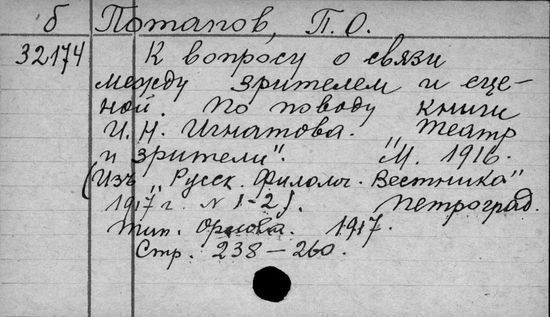 б Потапов, П. О.
32174 К вопросу о связи
между зрителем и сце-
ной. По поводу книги
И. Н. Игнатова. "Театр
и зрители". М. 1916.
(Изъ "Русск. Филолог. Вестника"
1917 г. N 1-2). Петроград.
тип. Орлова. 1917.
Стр. 238 — 260.